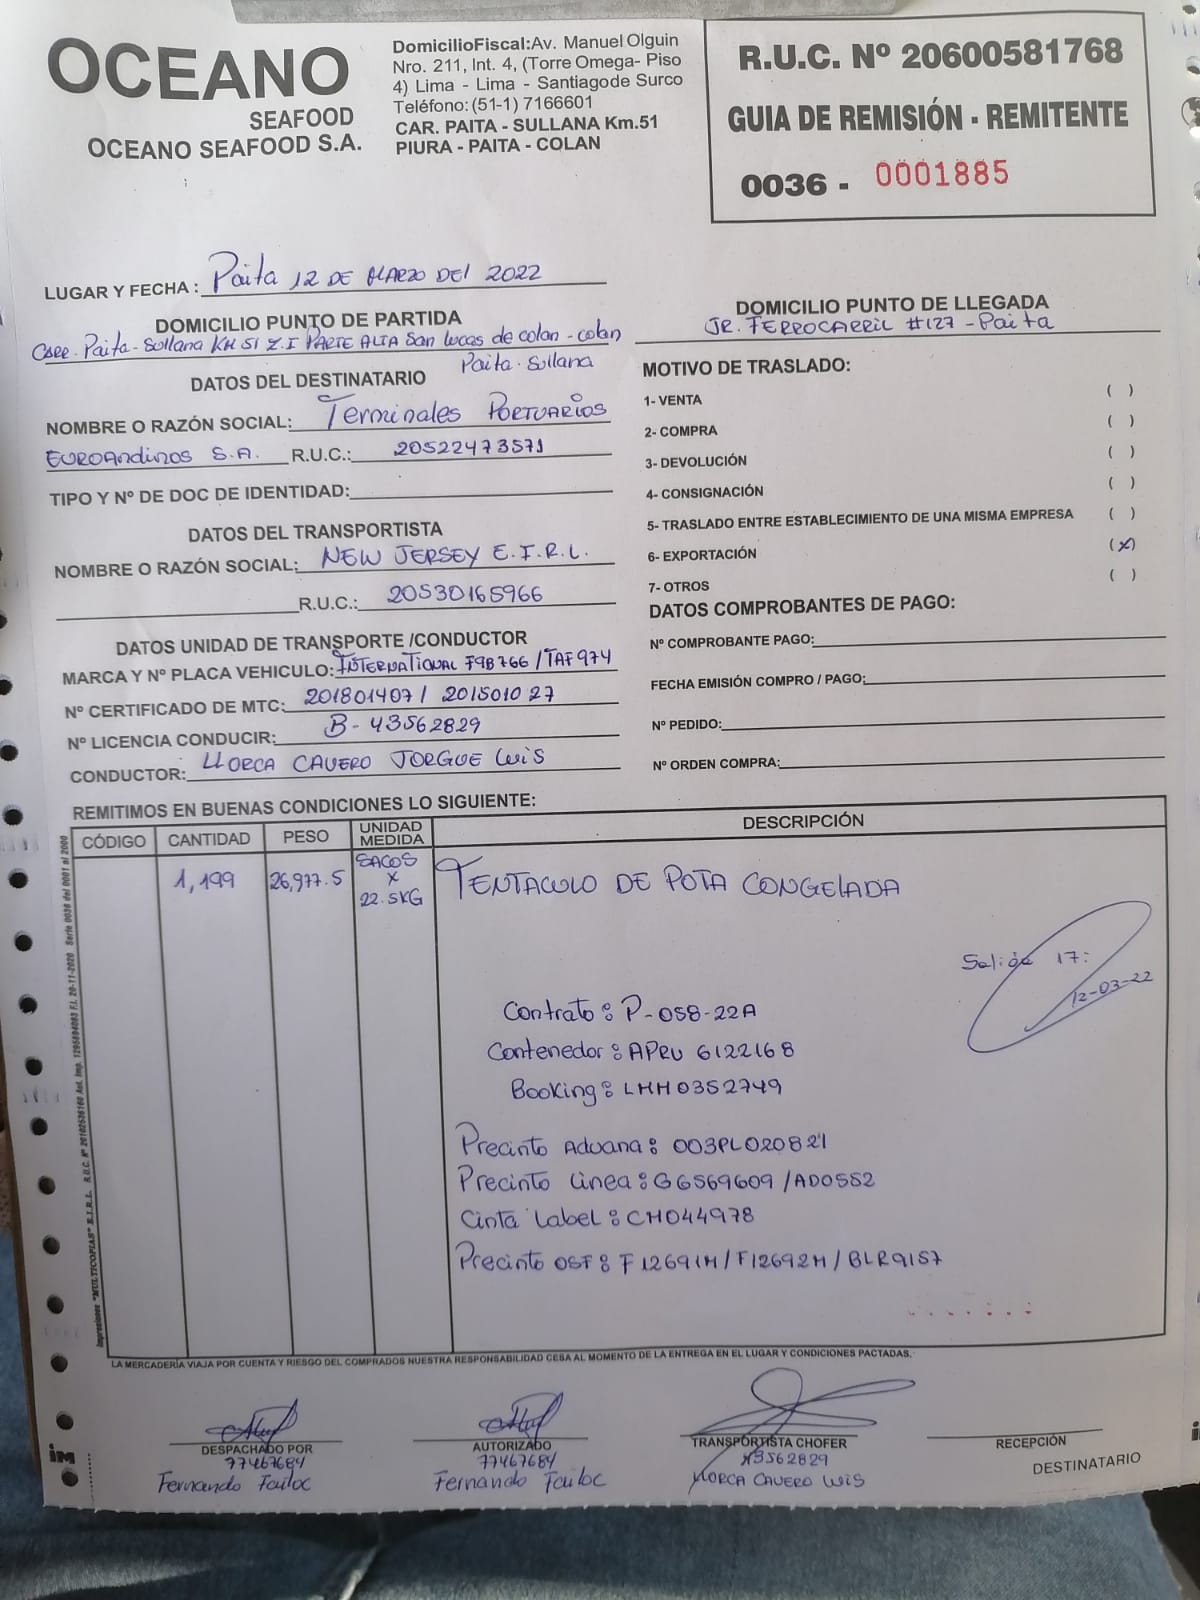 OCEANO
SEAFOOD
OCEANO SEAFOOD S.A.
DomicilioFiscal:Av. Manuel Olguin
Nro. 211, Int. 4, (Torre Omega- Piso
4) Lima - Lima - Santiagode Surco
Teléfono:(51-1) 7166601
CAR. PAITA - SULLANA Km.51
PIURA - PAITA - COLAN
R.U.C. Nº 20600581768
GUIA DE REMISIÓN - REMITENTE
0036 - 0001885
LUGAR Y FECHA : Paita 12 DE MARZO DEl 2022
DOMICILIO PUNTO DE PARTIDA
Carr. Paita-Sullana KM 51 Z.I PARTE ALTA San lucas de colan-colan
Paita-Sullana
DOMICILIO PUNTO DE LLEGADA
JR. FERROCARRIL #127-Paita
DATOS DEL DESTINATARIO
NOMBRE O RAZÓN SOCIAL: Terminales PORTUARIOS
EUROAndinos S.A. R.U.C.: 20522473571
TIPO Y Nº DE DOC DE IDENTIDAD:
DATOS DEL TRANSPORTISTA
NOMBRE O RAZÓN SOCIAL: NEW JERSEY E.I.R.L.
R.U.C.: 20530165966
DATOS UNIDAD DE TRANSPORTE /CONDUCTOR
MARCA Y Nº PLACA VEHICULO: INTERNATIONAL F9B766/TAF974
Nº CERTIFICADO DE MTC: 201801407/ 201501027
Nº LICENCIA CONDUCIR: B-43562829
CONDUCTOR: LLORCA CAVERO JORGUE LUIS
MOTIVO DE TRASLADO:
1- VENTA ( )
2- COMPRA ( )
3- DEVOLUCIÓN ( )
4- CONSIGNACIÓN ( )
5- TRASLADO ENTRE ESTABLECIMIENTO DE UNA MISMA EMPRESA ( )
6- EXPORTACIÓN (X)
7- OTROS ( )
DATOS COMPROBANTES DE PAGO:
Nº COMPROBANTE PAGO:
FECHA EMISIÓN COMPRO / PAGO:
Nº PEDIDO:
Nº ORDEN COMPRA:
REMITIMOS EN BUENAS CONDICIONES LO SIGUIENTE:
CÓDIGO CANTIDAD PESO UNIDAD MEDIDA DESCRIPCIÓN
1,199 26,977.5 SACOS X 22.5KG TENTACULO DE POTA CONGELADA
Salida 17:
12-03-22
Contrato: P-058-22A
Contenedor: APRU 6122168
Booking: LHH0352749
Precinto Aduana: 003PL020821
Precinto Linea: GG569609/AD0552
Cinta label: CH044978
Precinto OSF: F12691M/F12692M/BLR9157
Impresiones "MULTICOPIAS" E.I.R.L. R.U.C. Nº 20102536160 Aut. Imp. 1295894083 F.I. 20-11-2020 Serie 0036 del 0001 al 2000
LA MERCADERÍA VIAJA POR CUENTA Y RIESGO DEL COMPRADOS NUESTRA RESPONSABILIDAD CESA AL MOMENTO DE LA ENTREGA EN EL LUGAR Y CONDICIONES PACTADAS.
DESPACHADO POR
77467684
Fernando Failoc
AUTORIZADO
77467684
Fernando Failoc
TRANSPORTISTA CHOFER
43562829
LLORCA CAVERO LUIS
RECEPCIÓN
DESTINATARIO
im